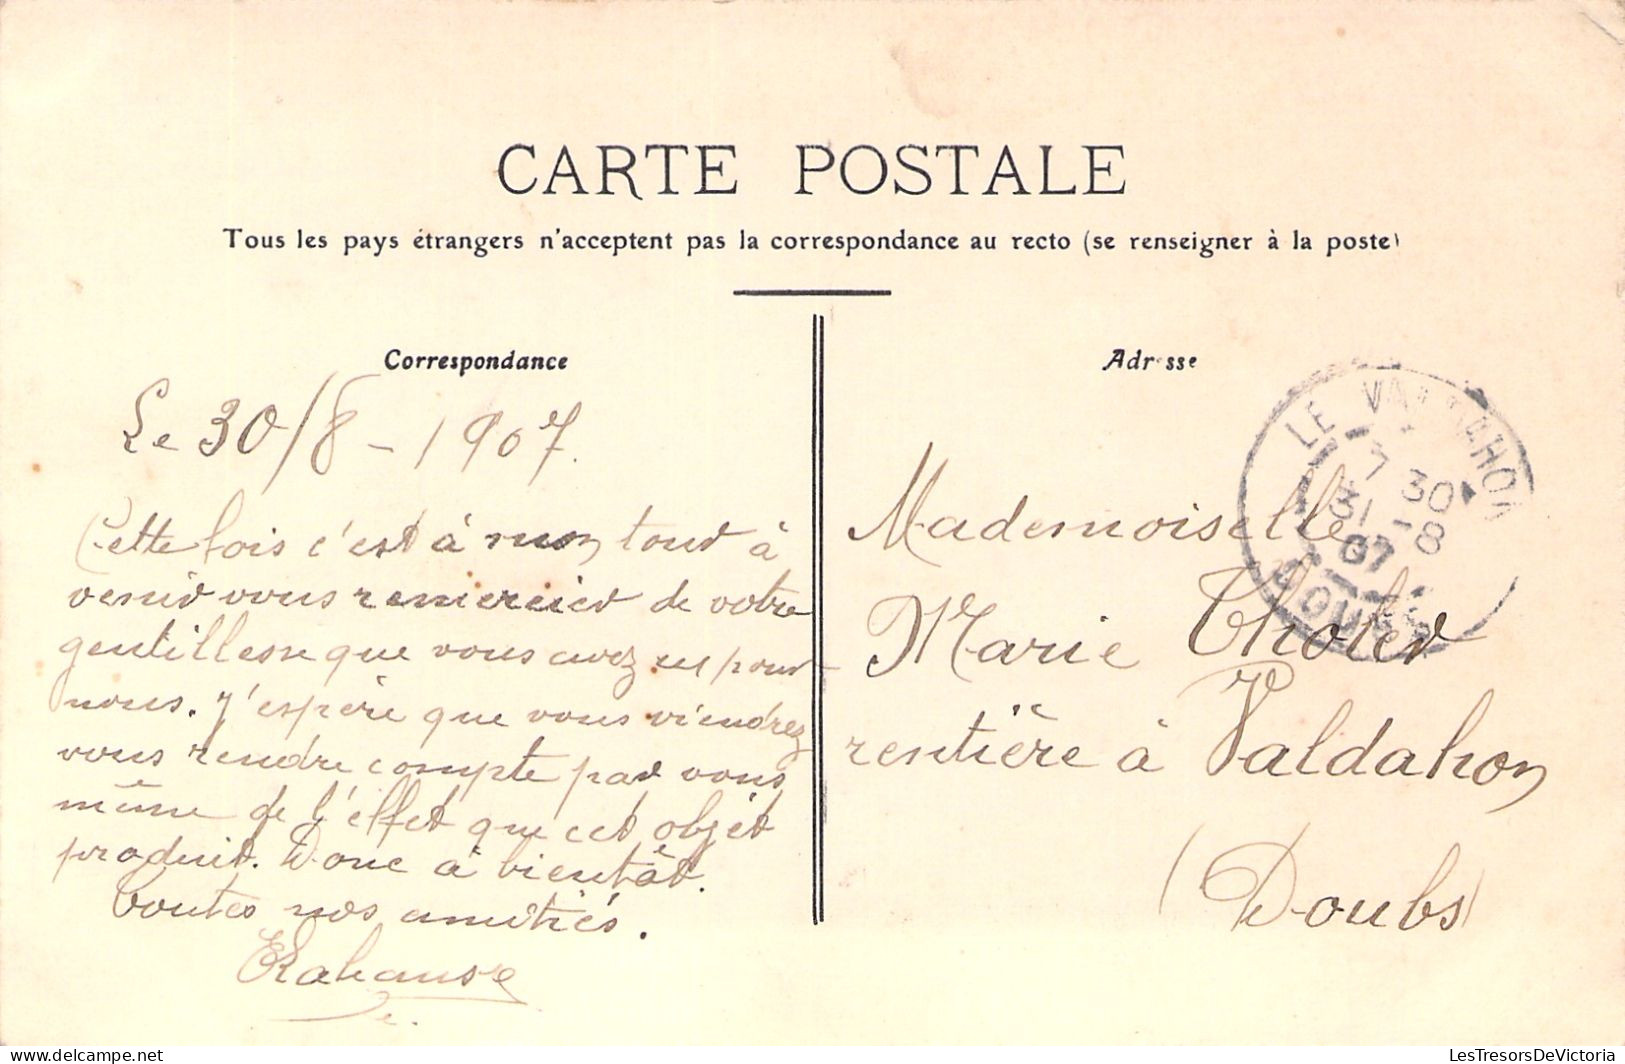 CARTE POSTALE
Tous les pays étrangers n'acceptent pas la correspondance au recto (se renseigner à la poste)
Correspondance
Le 30/8 - 1907.
Cette fois c'est à mon tour à
venir vous remercier de votre
gentillesse que vous avez eu pour
nous. J'espère que vous viendrez
vous rendre compte par vous
même de l'effet que cet objet
produit. Donc à bientôt.
Toutes nos amitiés.
Adresse
LE VALDAHON
7 30
31 - 8
07
DOUBS
Mademoiselle
Marie Tholer
rentière à Valdahon
(Doubs)
LesTresorsDeVictoria